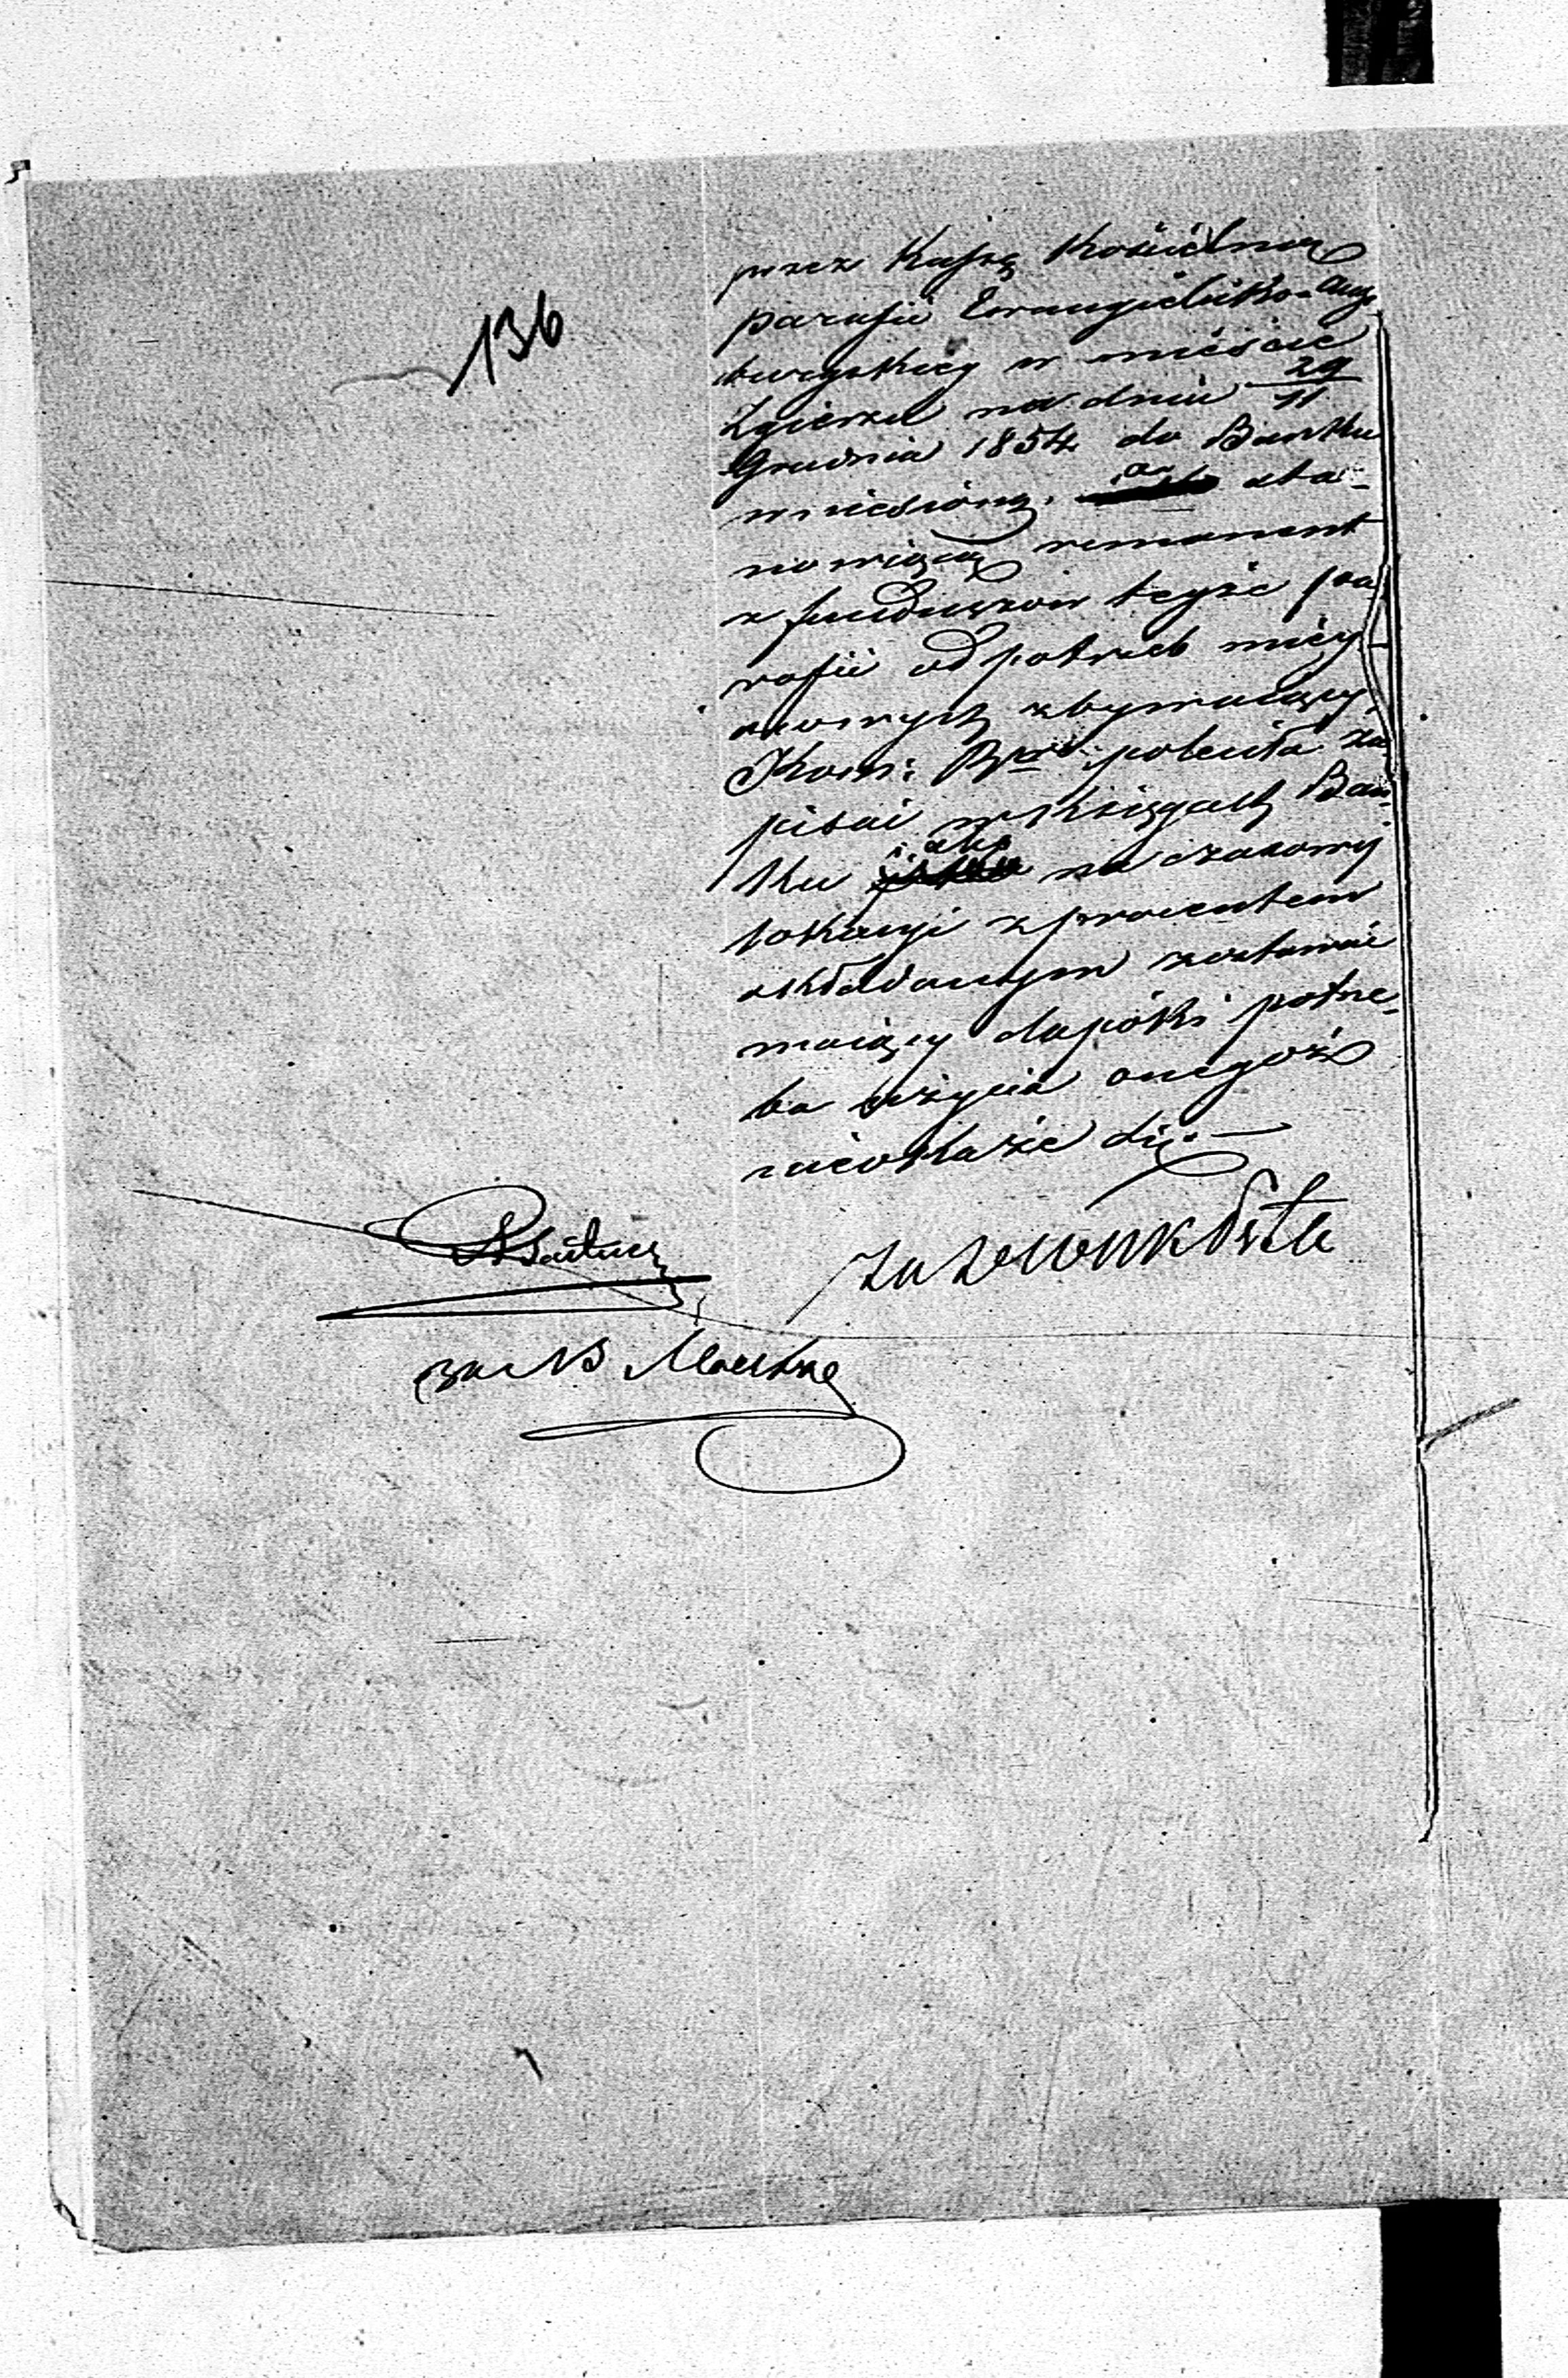 136
przez Kassę Kościelną
parafii Ewangielicko-Aug-
burgskiey w mieście
Zgierzu na dniu 29/11
Grudnia 1854 do Banku
wniesioną, a sta-
nowiącą remanent
z funduszów teyże pa-
rafii od potrzeb miey-
scowych zbywaiący,
Kom: Rzą: poleciła za-
pisać w księgach Ban-
ku iako na czasowey
lokacyi z procentem
składanym zostawać
maiący dopóki potrze-
ba użycia onegoż
nieokaże się.—
za NB